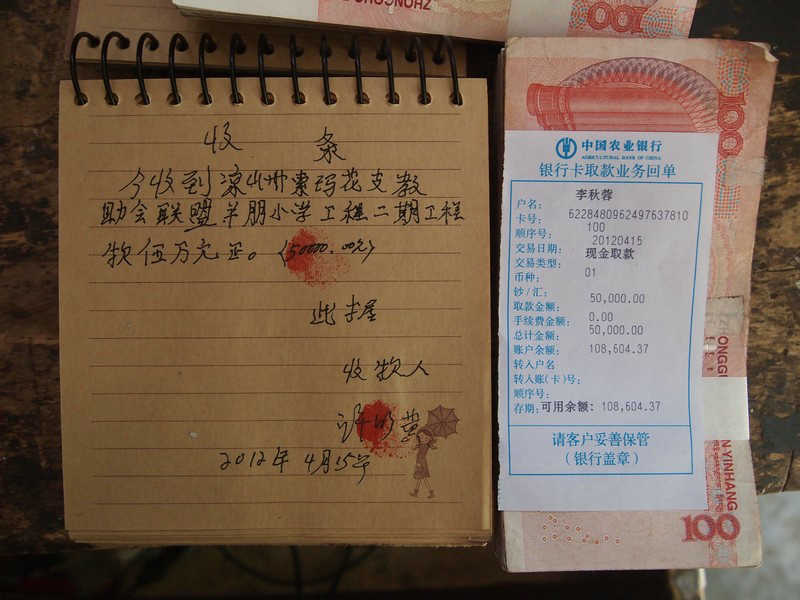 收 条
今收到凉山州索玛花支教
助会联盟羊朋小学工程二期工程
款伍万元正。(50000.00元)
此据
收款人
2012年4月15号
100
100
中国农业银行
AGRICULTURAL BANK OF CHINA
银行卡取款业务回单
户名: 李秋蓉
卡号: 6228480962497637810
顺序号: 100
交易日期: 20120415
交易类型: 现金取款
币种: 01
钞/汇:
取款金额: 50,000.00
手续费金额: 0.00
总计金额: 50,000.00
账户余额: 108,604.37
转入户名
转入账(卡)号:
顺序号:
存期: 可用余额: 108,604.37
请客户妥善保管
(银行盖章)
YINHANG
100